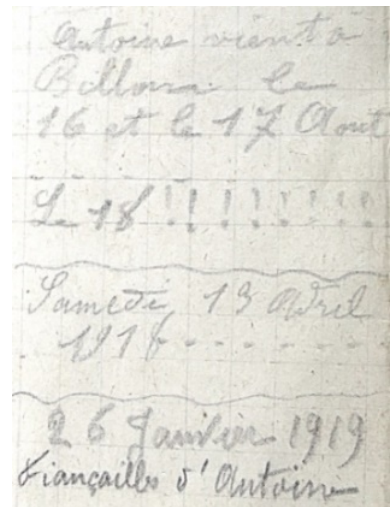 Antoine vient à
Billom le
16 et le 17 Aout
Le 18 !!!!!!!!
Samedi 13 Avril
1918 - - - - - -
26 Janvier 1919
Fiançailles d'Antoine